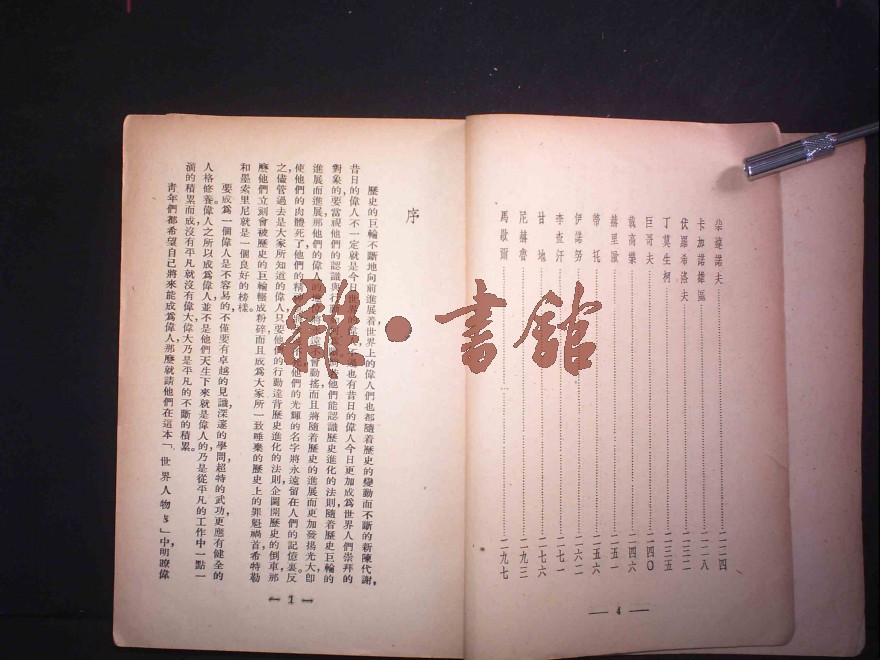 朵薩諾夫……一二四
卡加諾雄區……一二八
伏羅希洛夫……一三二
丁莫生柯……一三五
巨哥夫……一四〇
戴高樂……一四六
赫里歐……一五一
蒂托……一五六
伊諾努……一六二
李查汗……一七一
甘地……一七六
尼赫魯……一九三
馬歇爾……一九七
— 4 —
序
歷史的巨輪不斷地向前進展着世界上的偉人們也都隨着歷史的變動而不斷的新陳代謝，
昔日的偉人不一定就是今日世界的也有昔日的偉人今日更加成爲世界人們崇拜的
對象的要當視他們的認識與行他們能認識歷史進化的法則隨着歷史巨輪的
進展而進展那他們的偉人的將永遠不會動搖而且將隨着歷史的進展而更加發揚光大卽
使他們的肉體死了他們的精他們的光輝的名字將永遠留在人們的記億裏。反
之儘管過去是大家所知道的偉人只要他們的行動違背歷史進化的法則企圖開歷史的倒車那
麽他們立刻會被歷史的巨輪輾成粉碎而且成爲大家所一致唾棄的歷史上的罪魁禍首希特勒
和墨索里尼就是一個良好的榜樣。
要成爲一個偉人是不容易的不僅要有卓越的見識，深邃的學問超特的武功更應有健全的
人格修養。偉人之所以成爲偉人，並不是他們天生下來就是偉人的，乃是從平凡的工作中一點一
滴的積累而成沒有平凡就沒有偉大偉大乃是平凡的不斷的積累。
青年們都希望自己將來能成爲偉人，那麽就請他們在這本「世界人物」中明瞭偉
— 1 —
雜·書館